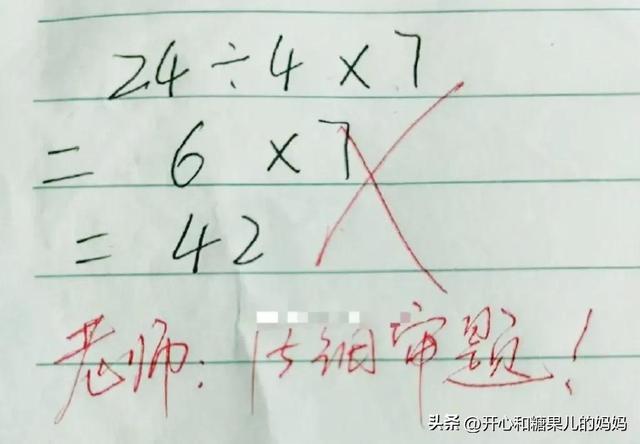 24÷4×7
= 6 ×7
= 42
老师：仔细审题！
头条 @开心和糖果儿的妈妈